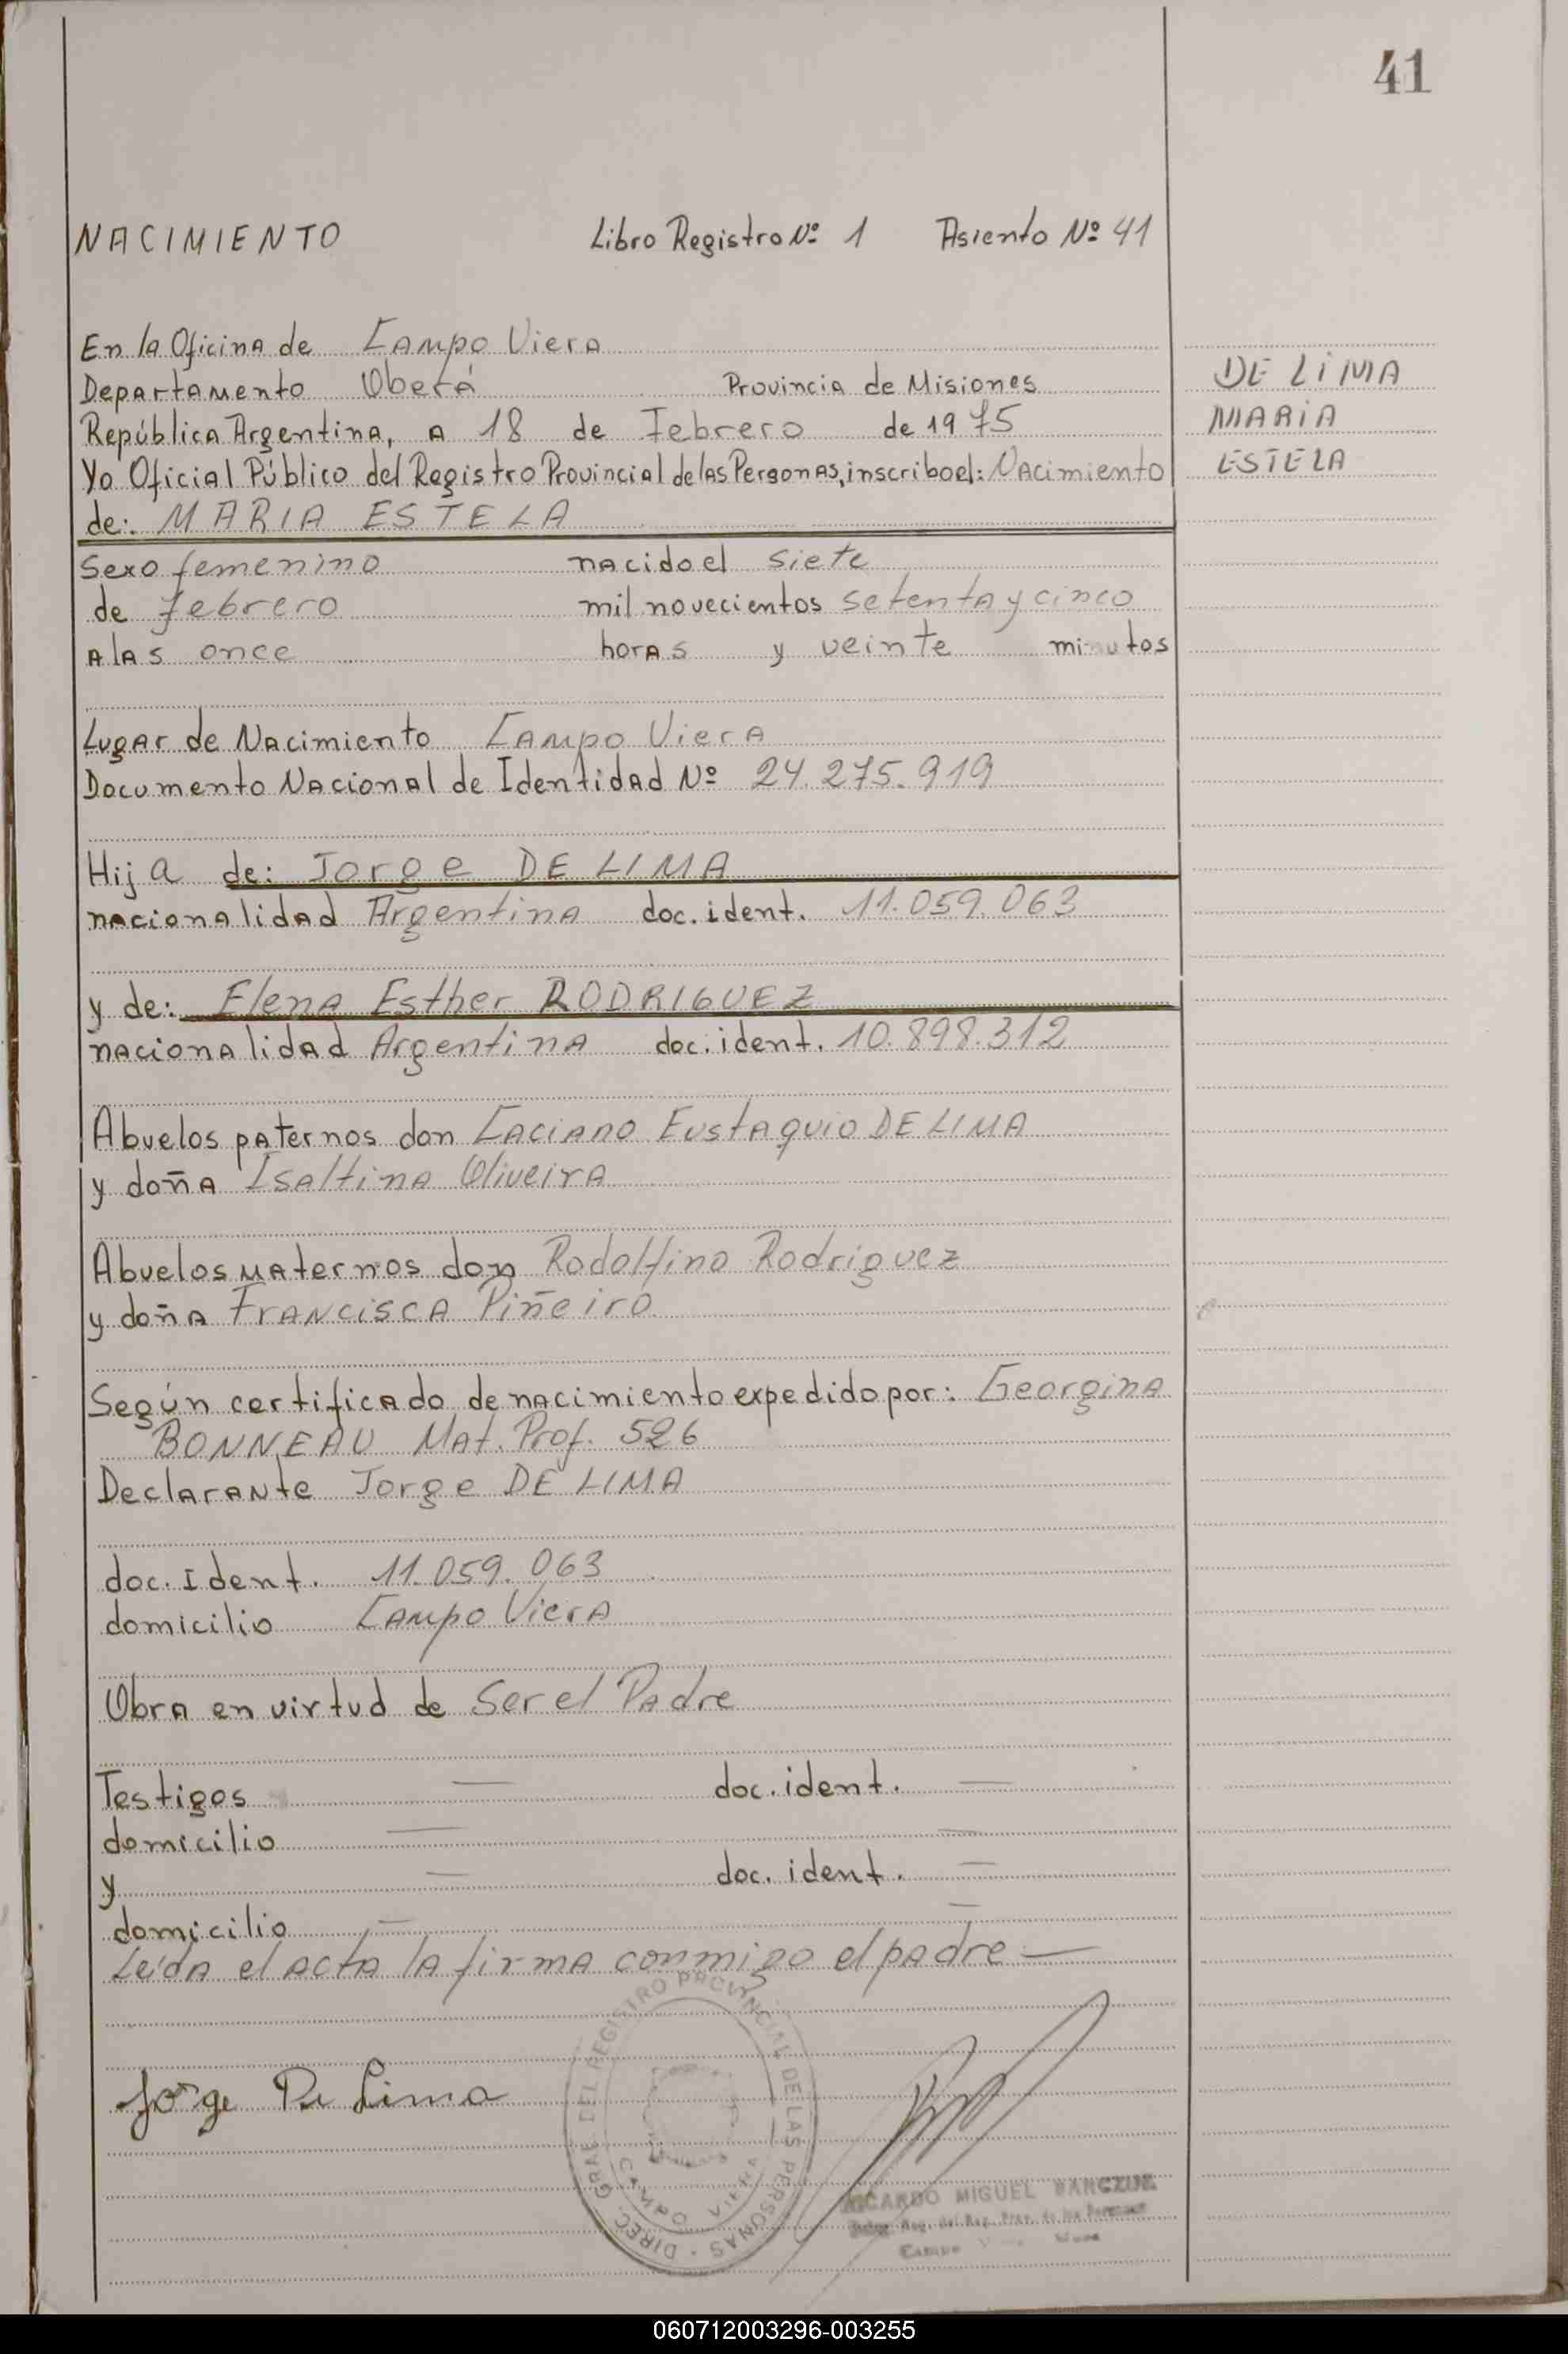 41
NACIMIENTO Libro Registro Nº 1 Asiento Nº 41
En la Oficina de Campo Viera
Departamento Oberá Provincia de Misiones
República Argentina, a 18 de Febrero de 1975
Yo Oficial Público del Registro Provincial de las Personas, inscribo el: Nacimiento
de: MARIA ESTELA
DE LIMA
MARIA
ESTELA
Sexo femenino nacido el siete
de febrero mil novecientos setenta y cinco
a las once horas y veinte minutos
Lugar de Nacimiento Campo Viera
Documento Nacional de Identidad Nº 24.275.919
Hija de: Jorge DE LIMA
nacionalidad Argentina doc. ident. 11.059.063
y de: Elena Esther RODRIGUEZ
nacionalidad Argentina doc. ident. 10.898.312
Abuelos paternos don Caciano Eustaquio DE LIMA
y doña Isaltina Oliveira
Abuelos maternos don Rodolfino Rodriguez
y doña Francisca Piñeiro
Según certificado de nacimiento expedido por: Georgina
BONNEAU Mat. Prof. 526
Declarante Jorge DE LIMA
doc. Ident. 11.059.063
domicilio Campo Viera
Obra en virtud de Ser el Padre
Testigos — doc. ident. —
domicilio — —
y — doc. ident. —
domicilio — —
Leída el acta la firma conmigo el padre —
Jorge De Lima
DIREC. GRAL. DEL REGISTRO PROVINCIAL DE LAS PERSONAS
CAMPO VIERA
RICARDO MIGUEL
Campo
060712003296-003255